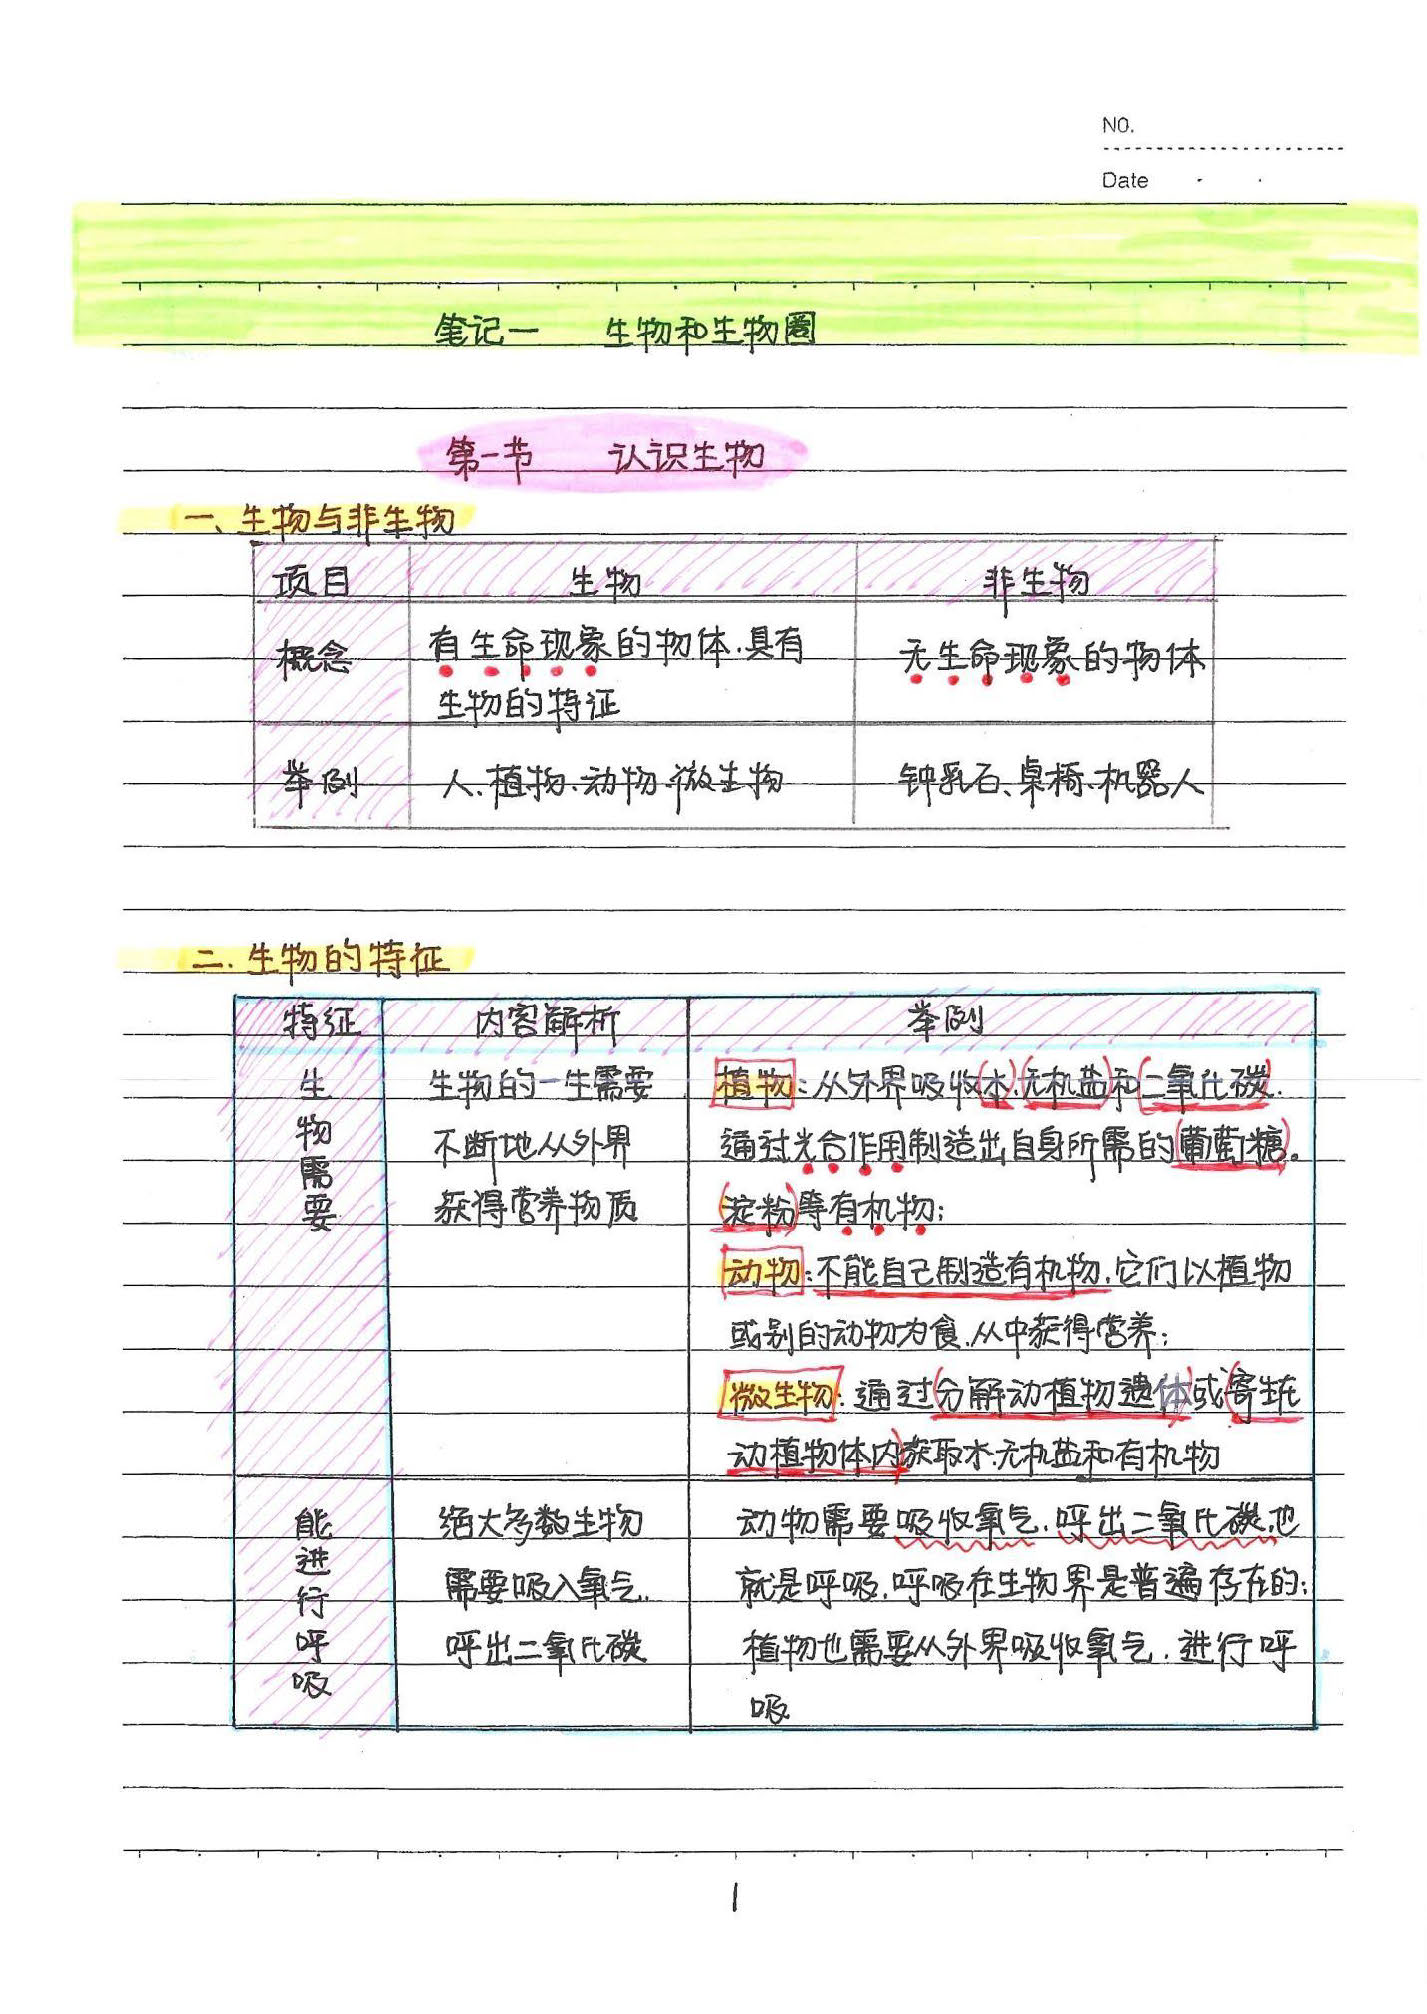 NO.
Date
笔记一 生物和生物圈
第一节 认识生物
一、生物与非生物
项目 生物 非生物
概念 有生命现象的物体.具有 无生命现象的物体
生物的特征
举例 人、植物、动物.微生物 钟乳石、桌椅、机器人
二.生物的特征
特征 内容解析 举例
生物需要 生物的一生需要 植物:从外界吸收(水).(无机盐)和(二氧化碳).
不断地从外界 通过光合作用制造出自身所需的(葡萄糖).
获得营养物质 (淀粉)等有机物;
动物:不能自己制造有机物.它们以植物
或别的动物为食.从中获得营养;
微生物:通过(分解动植物遗体)或(寄生在
动植物体内)获取水.无机盐和有机物
能进行呼吸 绝大多数生物 动物需要吸收氧气.呼出二氧化碳.也
需要吸入氧气. 就是呼吸.呼吸在生物界是普遍存在的;
呼出二氧化碳 植物也需要从外界吸收氧气.进行呼
吸
1